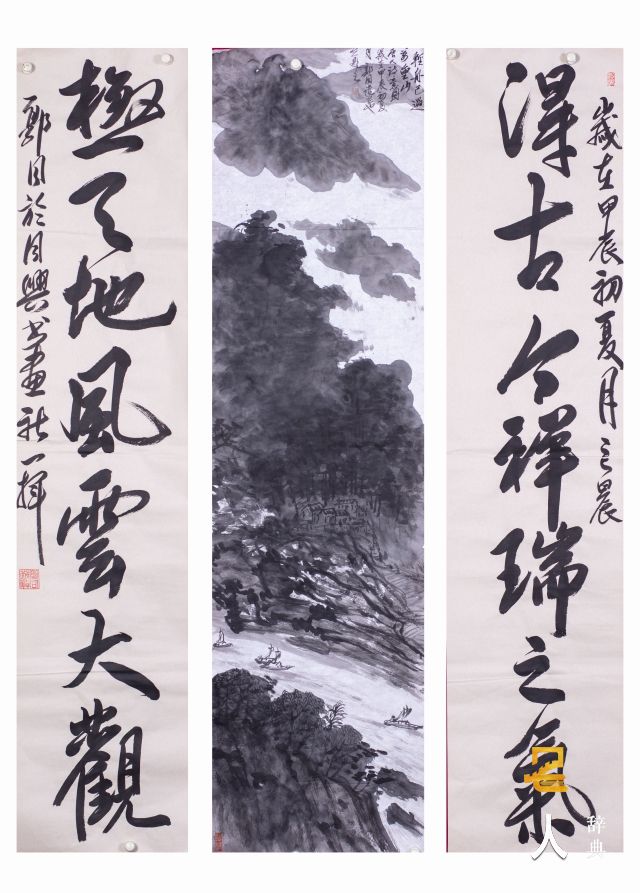 嵗在甲辰初夏月之晨
得古今祥瑞之氣
輕舟已過
萬重山
極天地風雲大觀
於目興書畫社一揮
人
辞典